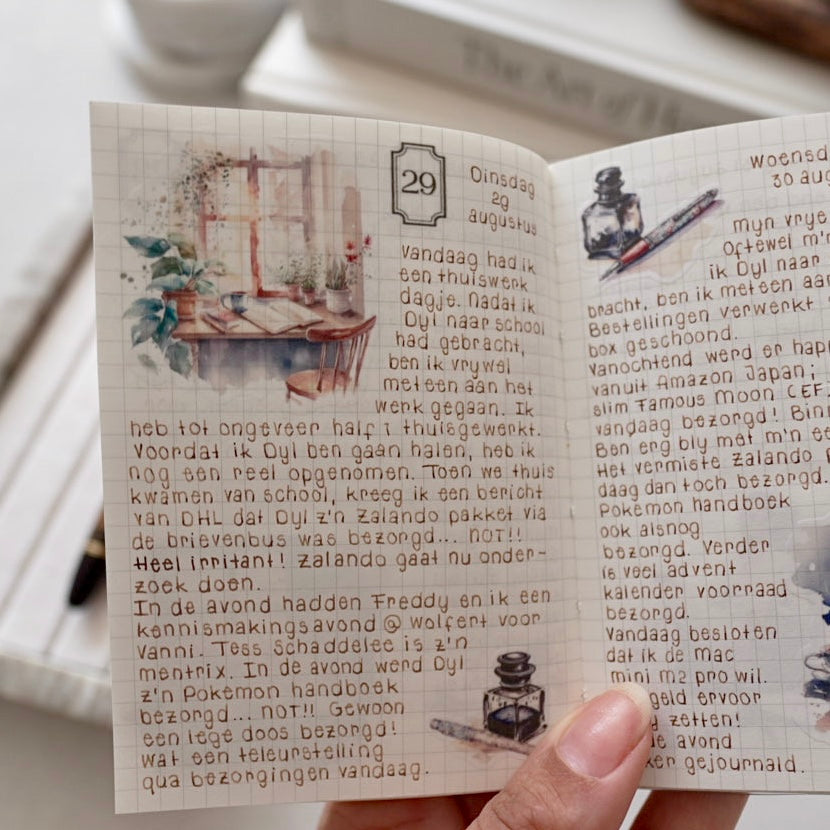 The Art of
29
Dinsdag
29
augustus
Vandaag had ik
een thuiswerk
dagje. Nadat ik
Dyl naar school
had gebracht,
ben ik vrywel
meteen aan het
werk gegaan. Ik
heb tot ongeveer half 1 thuisgewerkt.
Voordat ik Dyl ben gaan halen, heb ik
nog een reel opgenomen. Toen we thuis
kwamen van school, kreeg ik een bericht
van DHL dat Dyl z'n Zalando pakket via
de brievenbus was bezorgd... NOT!!
Heel irritant! Zalando gaat nu onder-
zoek doen.
In de avond hadden Freddy en ik een
kennismakingsavond @ Wolfert voor
Vanni. Tess Schaddelee is z'n
mentrix. In de avond werd Dyl
z'n Pokémon handboek
bezorgd... NOT!! Gewoon
een lege doos bezorgd!
wat een teleurstelling
qua bezorgingen vandaag.
woensd
30 aug
myn vrye
Oftewel m'n
ik Dyl naar
bracht, ben ik meteen aa
Bestellingen verwerkt
box geschoond.
vanochtend werd er
vanuit Amazon Japan;
slim Famous Moon CEF
vandaag bezorgd!
Ben erg bly met m'n
Het vermiste Zalando
daag dan toch bezorgd.
Pokémon handboek
ook alsnog
bezorgd. Verder
is veel advent
kalender voorraad
bezorgd.
Vandaag besloten
dat ik de mac
mini m2 pro wil.
geld ervoor
zetten!
de avond
gejournald.